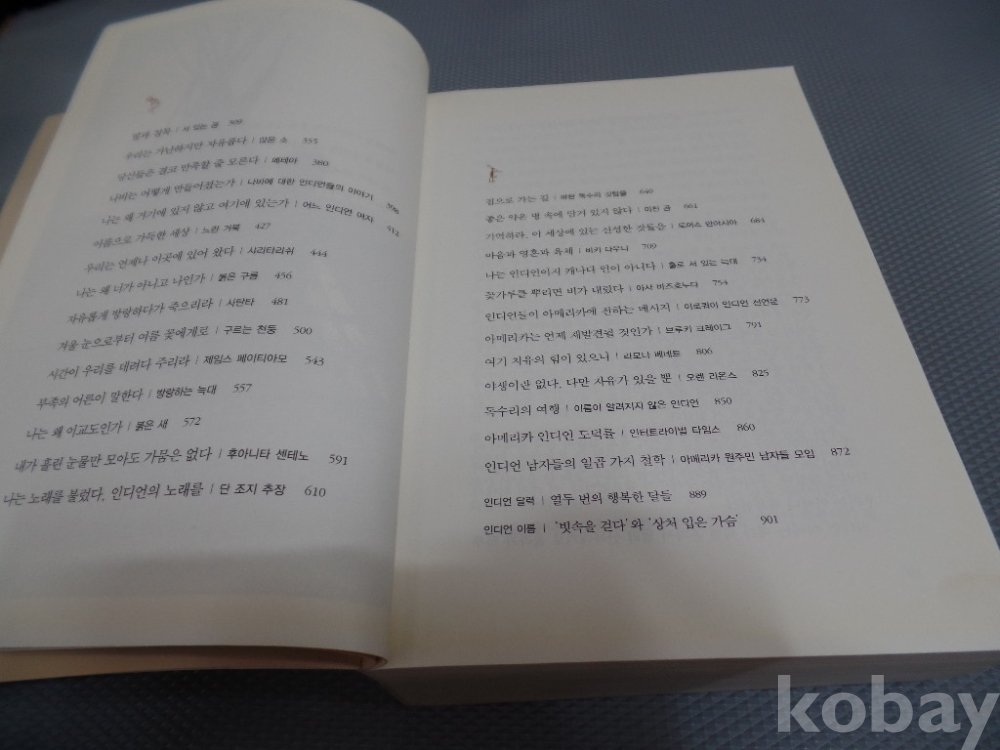 말과 침묵 | 서 있는 곰 309
우리는 가난하지만 자유롭다 | 앉은 소 355
당신들은 결코 만족할 줄 모른다 | 쎄테아 380
나비는 어떻게 만들어졌는가 | 나비에 대한 인디언들의 이야기 396
나는 왜 거기에 있지 않고 여기에 있는가 | 어느 인디언 여자 412
아름으로 가득한 세상 | 느린 거북 427
우리는 언제나 이곳에 있어 왔다 | 샤리타리쉬 444
나는 왜 너가 아니고 나인가 | 붉은 구름 456
자유롭게 방랑하다가 죽으리라 | 사탄타 481
겨울 눈으로부터 여름 꽃에게로 | 구르는 천둥 500
시간이 우리를 데려다 주리라 | 제임스 페이티아모 543
부족의 어른이 말한다 | 방랑하는 늑대 557
나는 왜 이교도인가 | 붉은 새 572
내가 흘린 눈물만 모아도 가뭄은 없다 | 후아니타 센테노 591
나는 노래를 불렀다, 인디언의 노래를 | 단 조지 추장 610
집으로 가는 길 | 640
좋은 약은 병 속에 담겨 있지 않다 | 미친 곰 661
기억하라, 이 세상에 있는 신성한 것들을 | 토머스 반야시아 684
마음과 영혼과 육체 | 비키 다우니 709
나는 인디언이지 캐나다 인이 아니다 | 홀로 서 있는 늑대 734
꽃가루를 뿌리면 비가 내렸다 | 아사 바즈호누다 754
인디언들이 아메리카에 전하는 메시지 | 이로쿼이 인디언 선언문 773
아메리카는 언제 재발견될 것인가 | 브루키 크레이그 791
여기 치유의 힘이 있으니 | 라모나 베네트 806
야생이란 없다, 다만 자유가 있을 뿐 | 오렌 리온스 825
독수리의 여행 | 이름이 알려지지 않은 인디언 850
아메리카 인디언 도덕률 | 인터트라이벌 타임스 860
인디언 남자들의 일곱 가지 철학 | 아메리카 원주민 남자들 모임 872
인디언 달력 | 열두 번의 행복한 달들 889
인디언 이름 | '빗속을 걷다'와 '상처 입은 가슴' 901
kobay